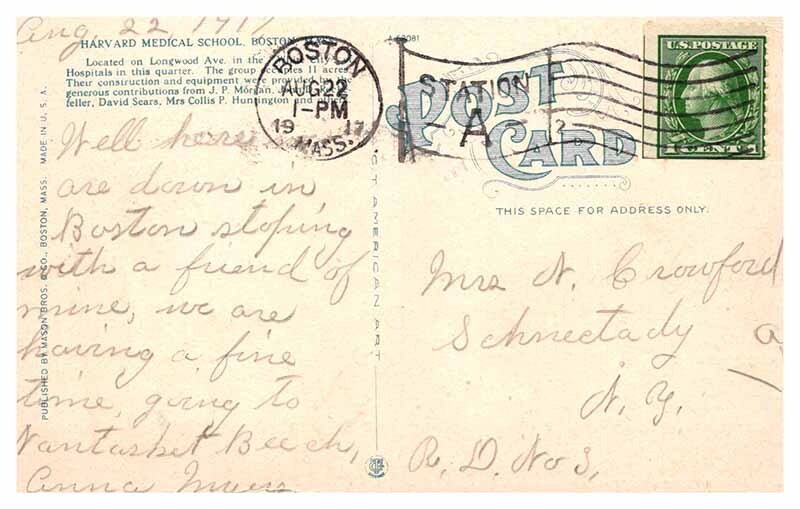 Aug. 22 1917
HARVARD MEDICAL SCHOOL, BOSTON, MASS.
Located on Longwood Ave. in the
Hospitals in this quarter. The group occupies 11 acres.
Their construction and equipment were provided by the
generous contributions from J. P. Morgan, John D. Rocke-
feller, David Sears, Mrs Collis P. Huntington and others.
Well here
are down in
Boston stoping
with a friend of
mine, we are
having a fine
time, going to
Nantasket Beech,
Anna Myers
PUBLISHED BY MASON BROS. & CO., BOSTON, MASS. MADE IN U.S.A.
BOSTON
AUG 22
1-PM
19 17
MASS.
STATION
A
POST
CARD
U.S. POSTAGE
1 CENT 1
THIS SPACE FOR ADDRESS ONLY.
Mrs N. Crowford
Schnectady
N. Y.
R. D. No 3,